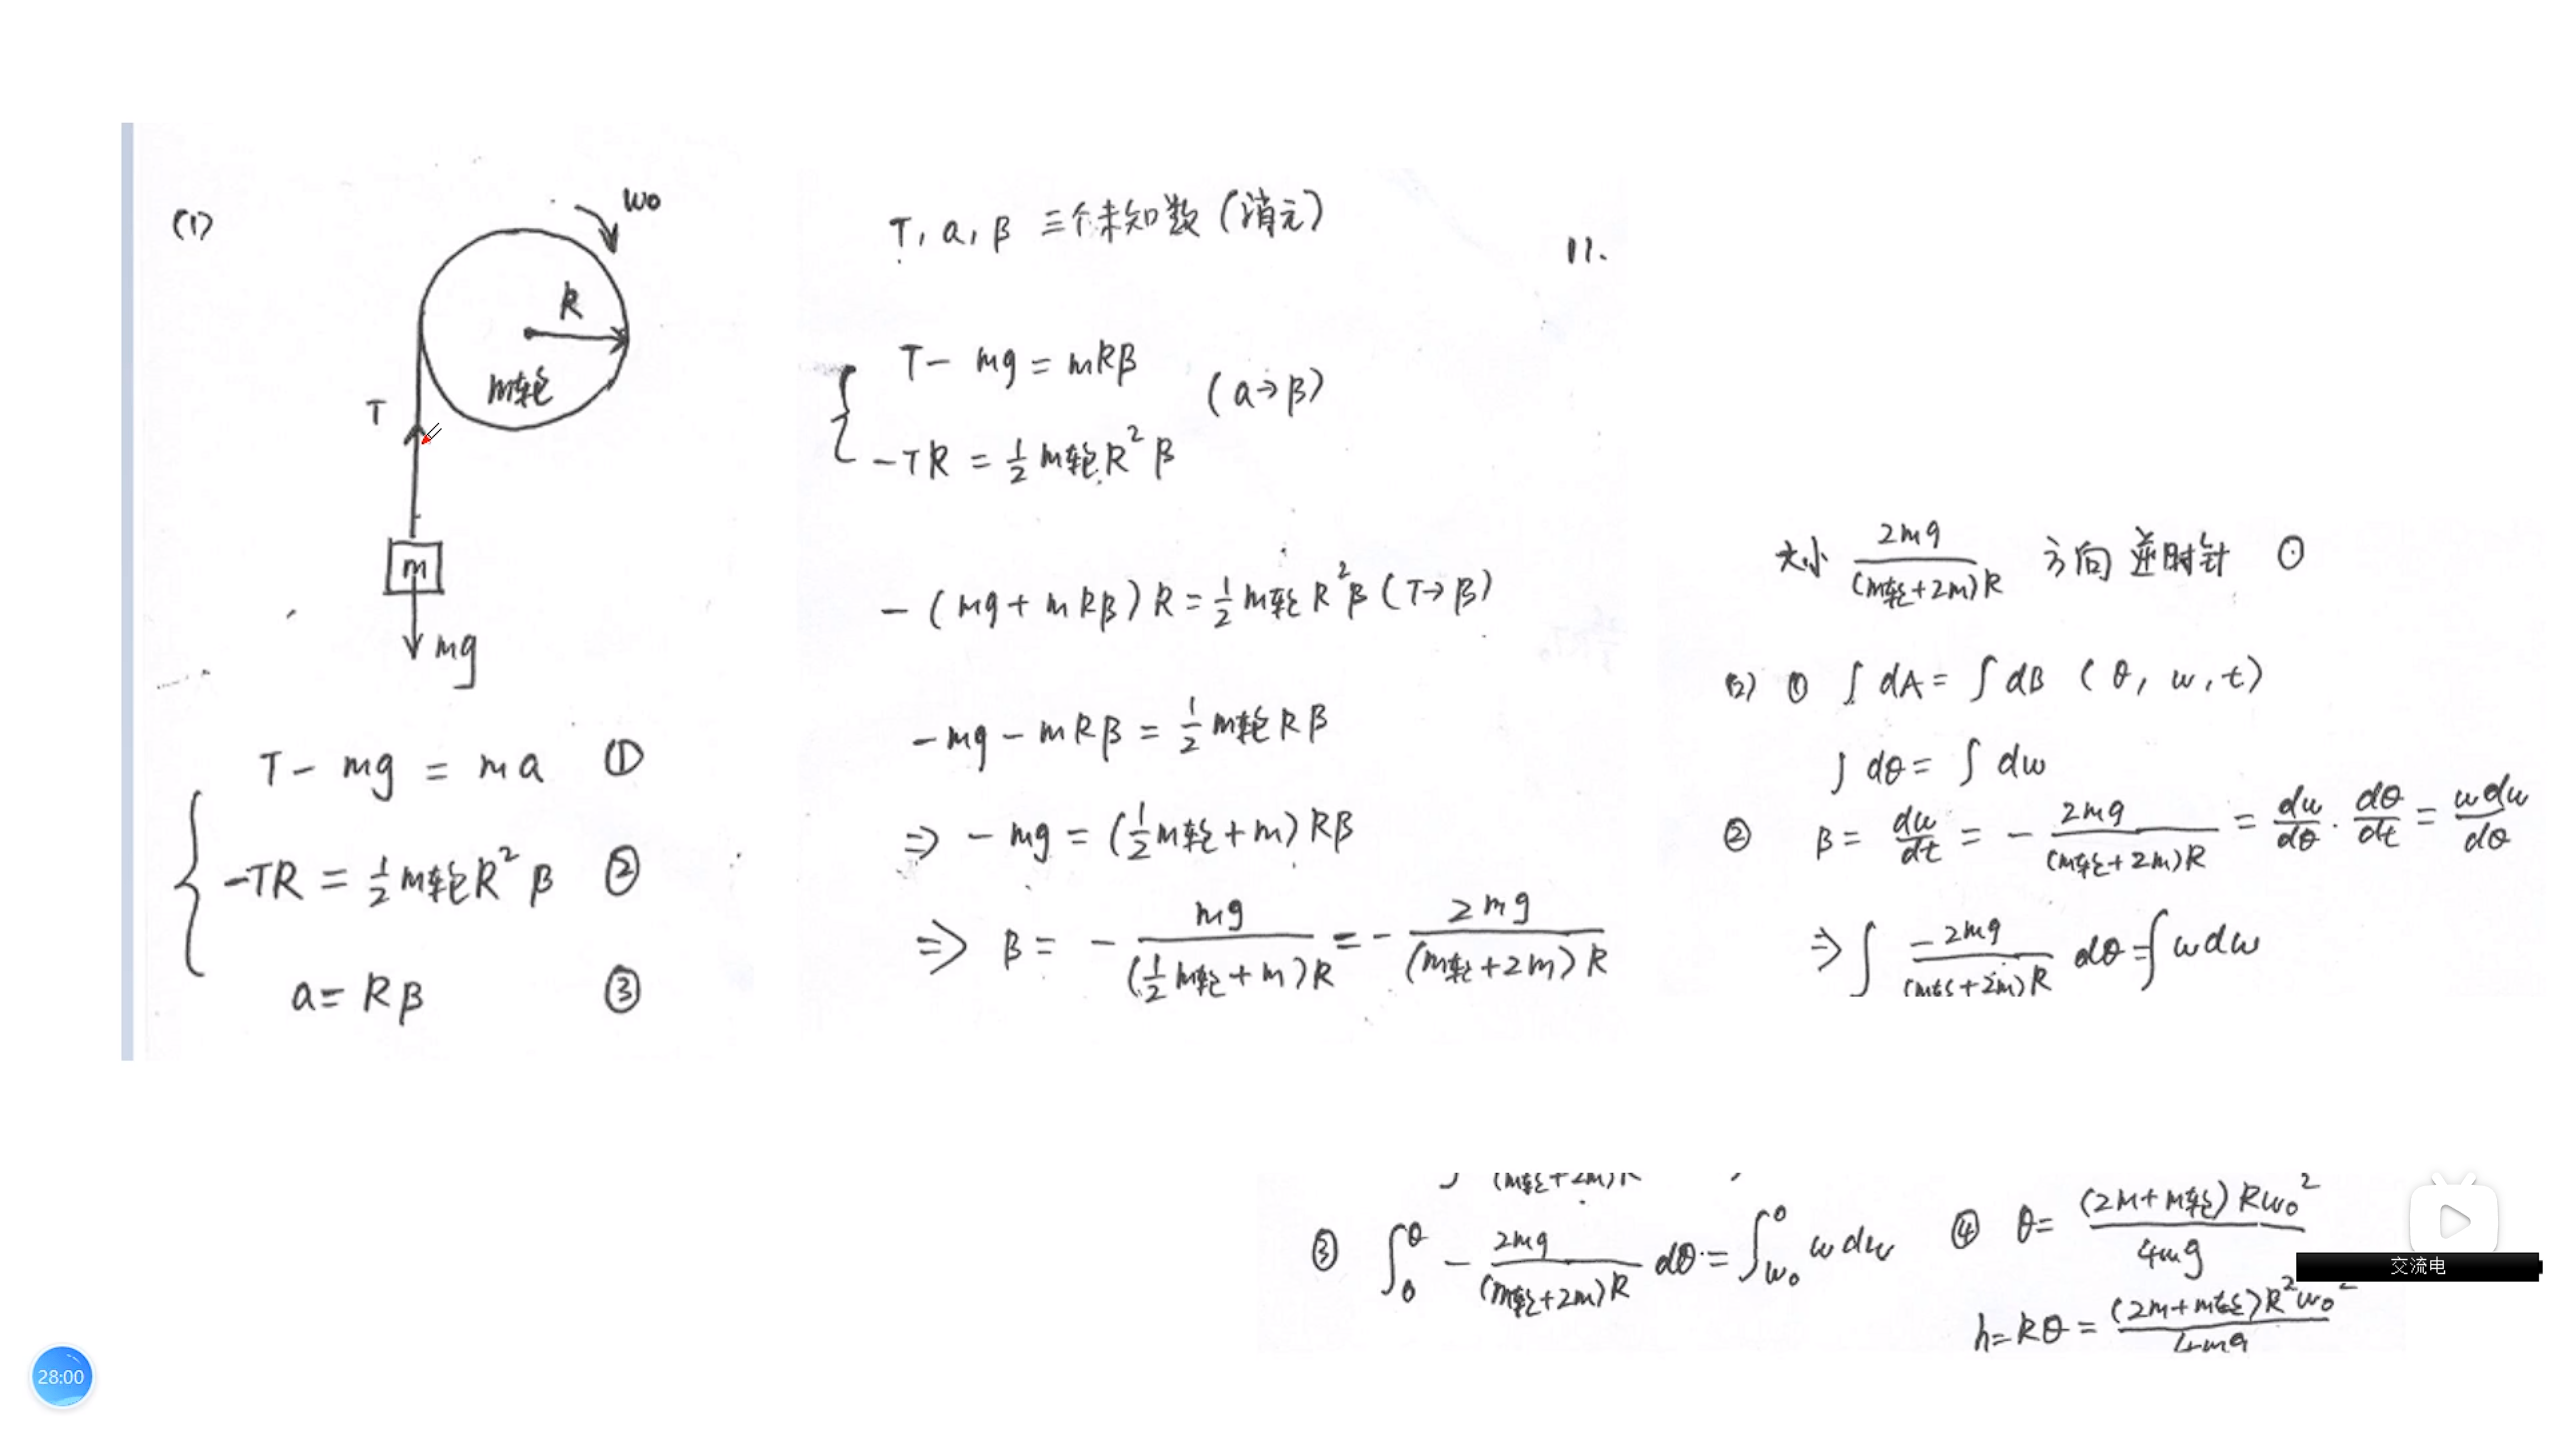 (1)
ω₀
R
m轮
T
m
mg
T - mg = ma ①
-TR = ½ m轮R² β ②
a = Rβ ③
T, a, β 三个未知数 (消元)
T - mg = mRβ
(a→β)
-TR = ½ m轮R² β
-(mg + mRβ)R = ½ m轮R²β (T→β)
-mg - mRβ = ½ m轮Rβ
⇒ -mg = (½m轮 + m)Rβ
⇒ β = - mg / (½m轮 + m)R = - 2mg / (m轮 + 2m)R
11.
大小 2mg / (m轮+2m)R 方向 逆时针
(2) ① ∫dA = ∫dB (θ, ω, t)
∫dθ = ∫dω
② β = dω/dt = - 2mg / (m轮+2m)R = dω/dθ · dθ/dt = ωdω/dθ
⇒ ∫ -2mg / (m轮+2m)R dθ = ∫ωdω
(m轮+2m)R
③ ∫₀^θ - 2mg / (m轮+2m)R dθ = ∫_ω₀^0 ωdω
④ θ = (2m+m轮)Rω₀² / 4mg
h = Rθ = (2m+m轮)R²ω₀² / 4mg
交流电
28:00